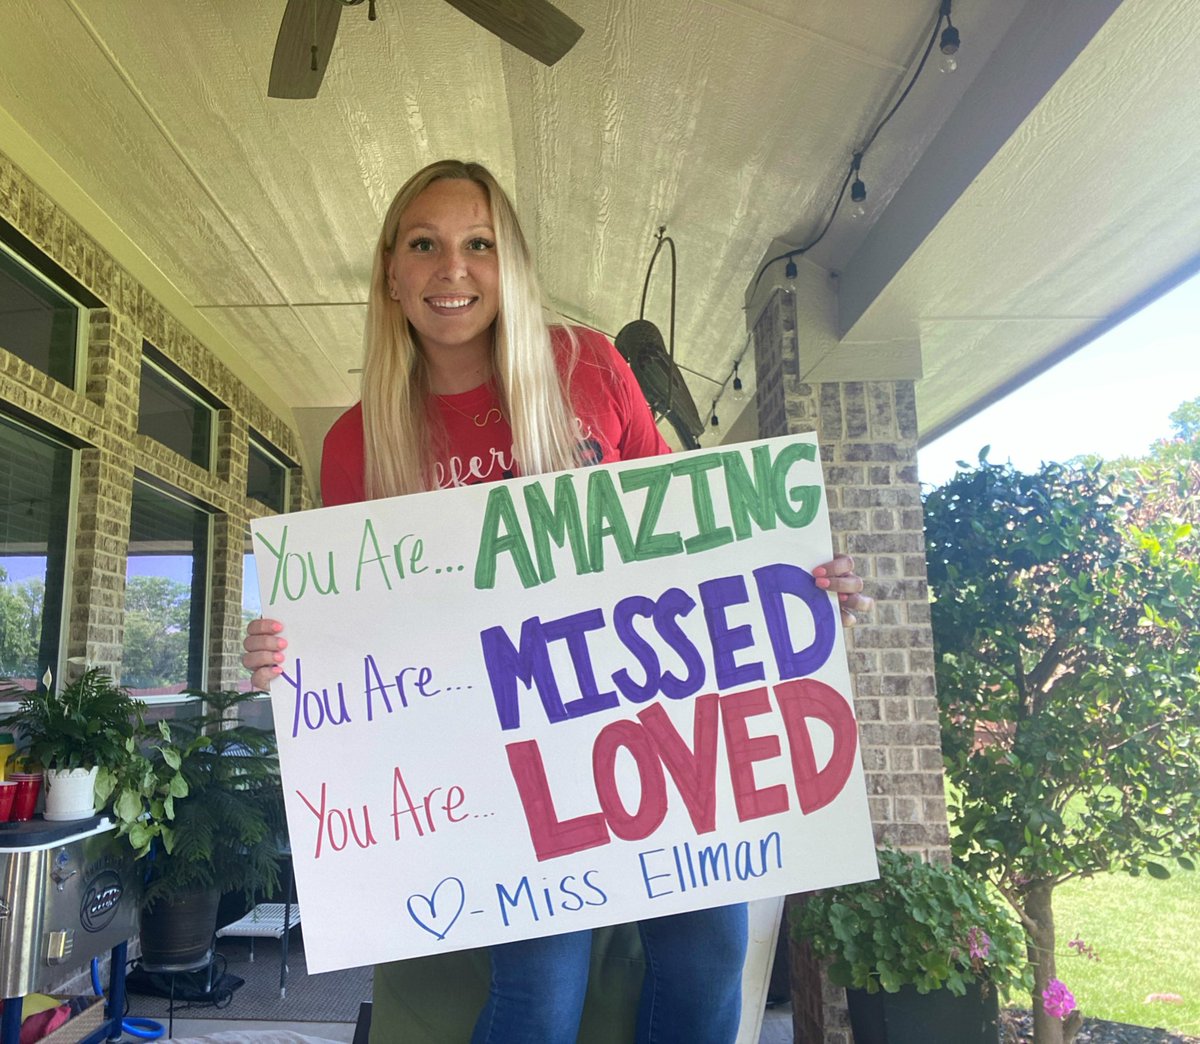 You Are... AMAZING
You Are... MISSED
You Are... LOVED
♡-Miss Ellman